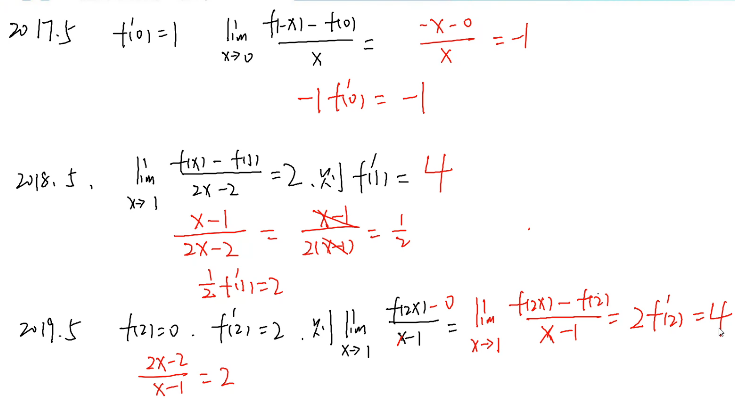 2017.5 f'(0)=1 lim x→0 f(-x)-f(0) / x = -x-0 / x = -1
-1 f'(0) = -1
2018.5. lim x→1 f(x)-f(1) / 2x-2 = 2. 则 f'(1) = 4
x-1 / 2x-2 = x-1 / 2(x-1) = 1/2
1/2 f'(1) = 2
2019.5 f(2)=0. f'(2)=2. 则 lim x→1 f(2x)-0 / x-1 = lim x→1 f(2x)-f(2) / x-1 = 2f'(2) = 4
2x-2 / x-1 = 2